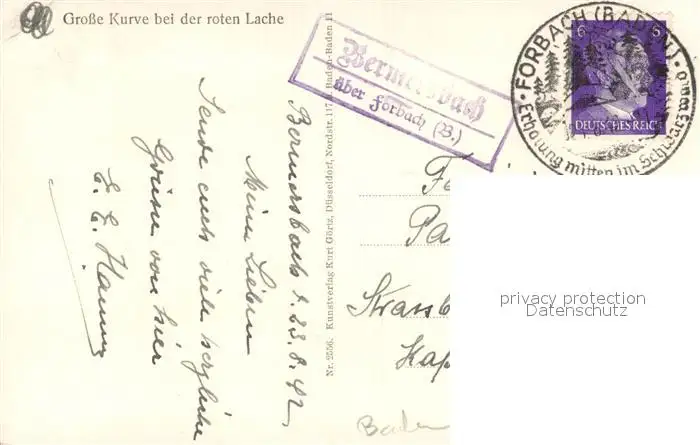 Große Kurve bei der roten Lache
Bermersbach
über Forbach (B.)
FORBACH (BADEN)
Erholung mitten im Schwarzwald
6 6
DEUTSCHES REICH
Bermersbach d. 23.8.42.
Meine Lieben
Sende euch viele herzliche
Grüsse von hier
E. E. Hannus
Nr. 2556. Kunstverlag Kurt Görtz, Düsseldorf, Nordstr. 117 u. Baden-Baden 11
Strassb
Kap
Baden
privacy protection
Datenschutz